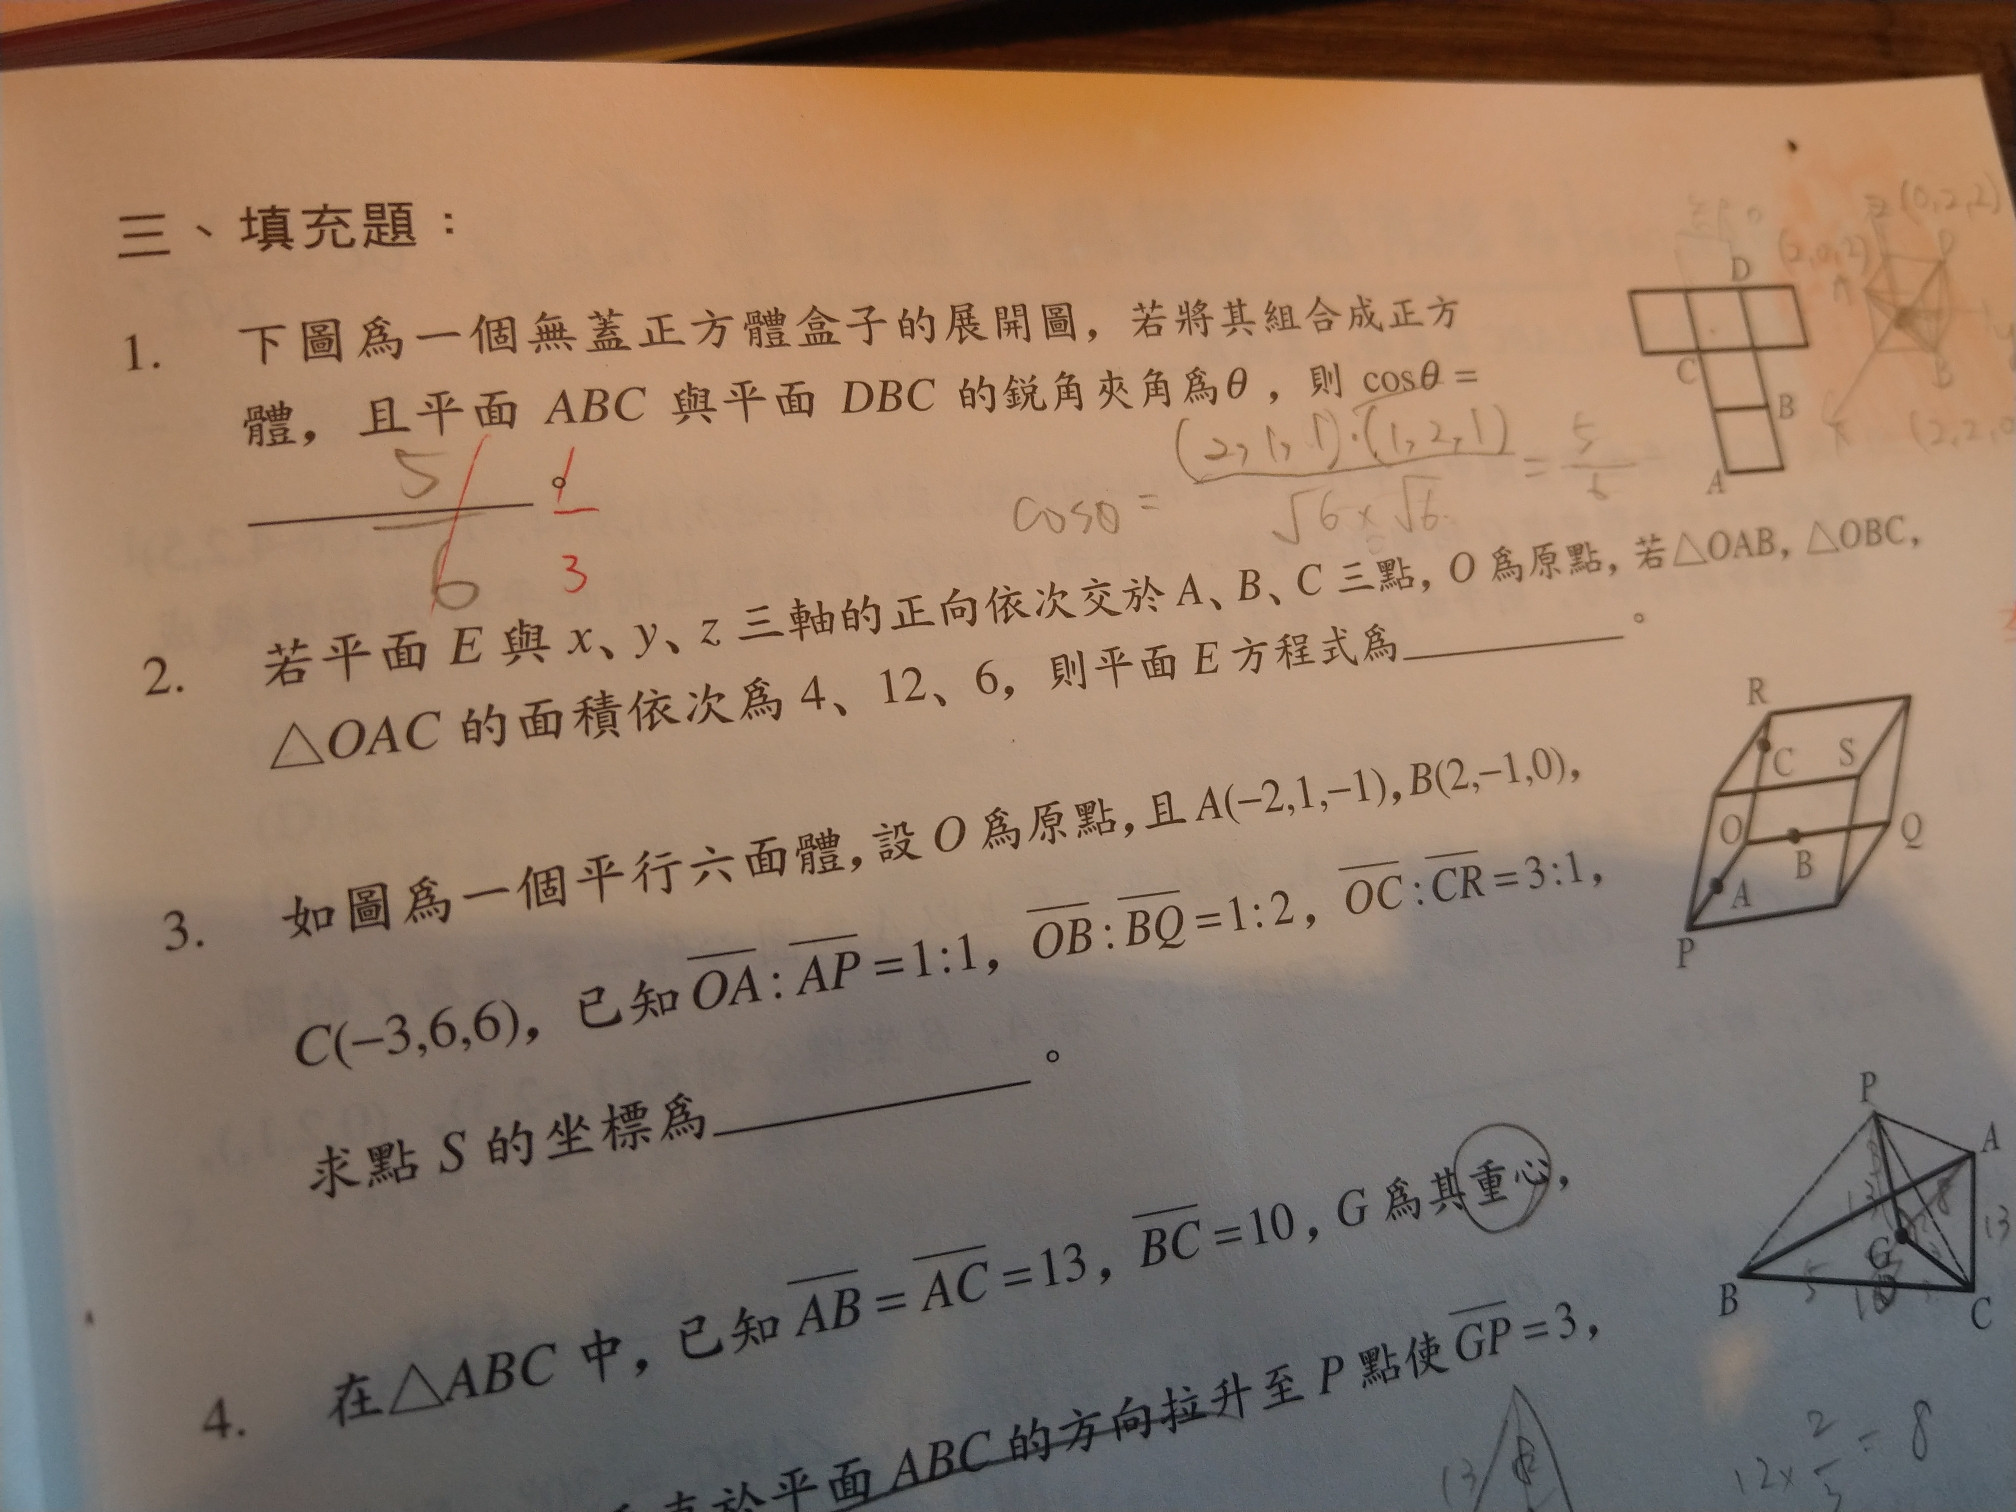 三、填充題：
1. 下圖爲一個無蓋正方體盒子的展開圖，若將其組合成正方
體，且平面 ABC 與平面 DBC 的銳角夾角爲θ，則 cosθ =
5/6 。 1/3
cosθ = (2,1,1)·(1,2,1) / √6×√6 = 5/6
D
C
B
A
(0,2,2)
(2,0,2)
2. 若平面 E 與 x、y、z 三軸的正向依次交於 A、B、C 三點，O 爲原點，若△OAB，△OBC，
△OAC 的面積依次爲 4、12、6，則平面 E 方程式爲 。
3. 如圖爲一個平行六面體，設 O 爲原點，且 A(−2,1,−1), B(2,−1,0),
C(−3,6,6)，已知 OA : AP = 1:1，OB : BQ = 1:2，OC : CR = 3:1，
求點 S 的坐標爲 。
R
C S
O Q
B
A
P
4. 在△ABC 中，已知 AB = AC = 13，BC = 10，G 爲其重心，
直於平面 ABC 的方向拉升至 P 點使 GP = 3，
P
A
13
G
B 5
C
13
12× 2/3 = 8